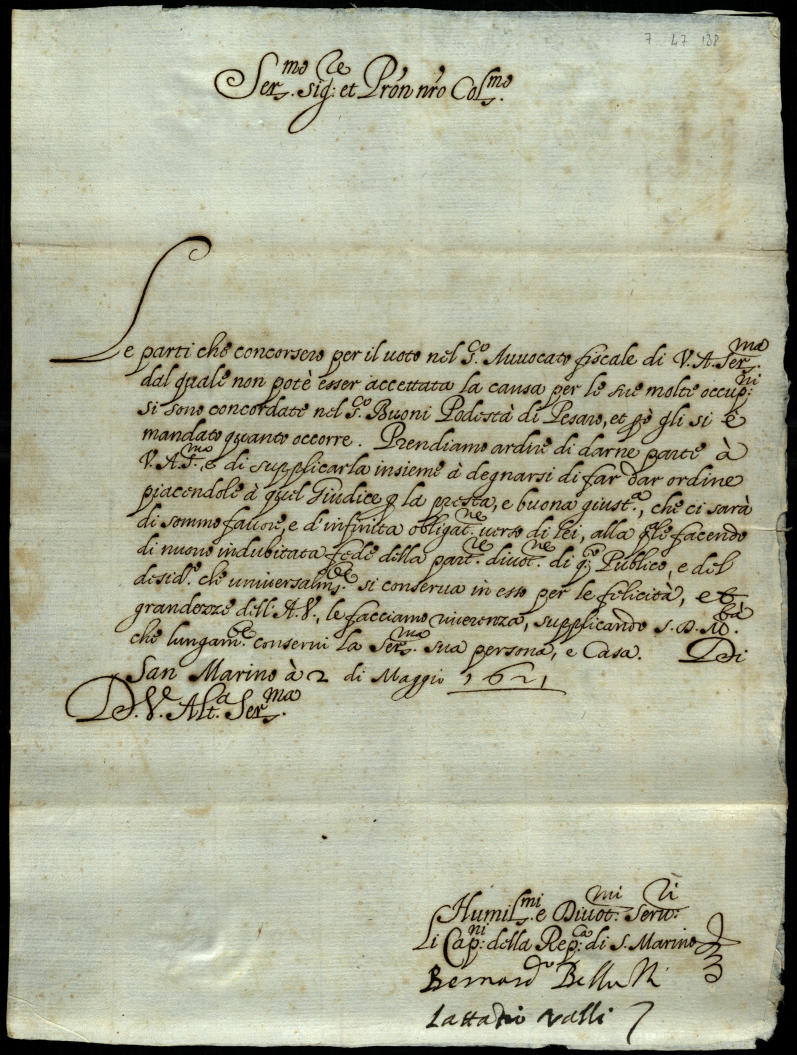 7 47 138
Ser.mo Sig.re et Pron nro Col.mo
Le parti che concorsero per il voto nel S.o Avvocato fiscale di V. A. Ser.ma
dal quale non potè esser accettata la causa per le sue molte occup.ni
si sono concordate nel S.o Buoni Podestà di Pesaro, et pò gli si è
mandato quanto occorre. Prendiamo ardire di darne parte à
V. A. S.ma e di supplicarla insieme à degnarsi di far dar ordine
piacendole à quel Giudice p la presta, e buona giust.a, che ci sarà
di sommo favore, e d'infinita obligat.ne verso di Lei, alla qle facendo
di nuovo indubitata fede della part.re divot.ne di q.o Publico, e del
desid.o che universalm.te si conserva in esso per le felicità, e
grandezze dell'A. V., le facciamo riverenza, supplicando S. D. M.tà
che lungam.te conservi la Ser.ma sua persona, e Casa. Di
San Marino à 2 di Maggio 1621
D. V. Alt.a Ser.ma
Humil.mi e Divot.mi Serv.ri
Li Cap.ni della Rep.ca di S. Marino
Bernard.o Belluzzi
Lattantio Valli